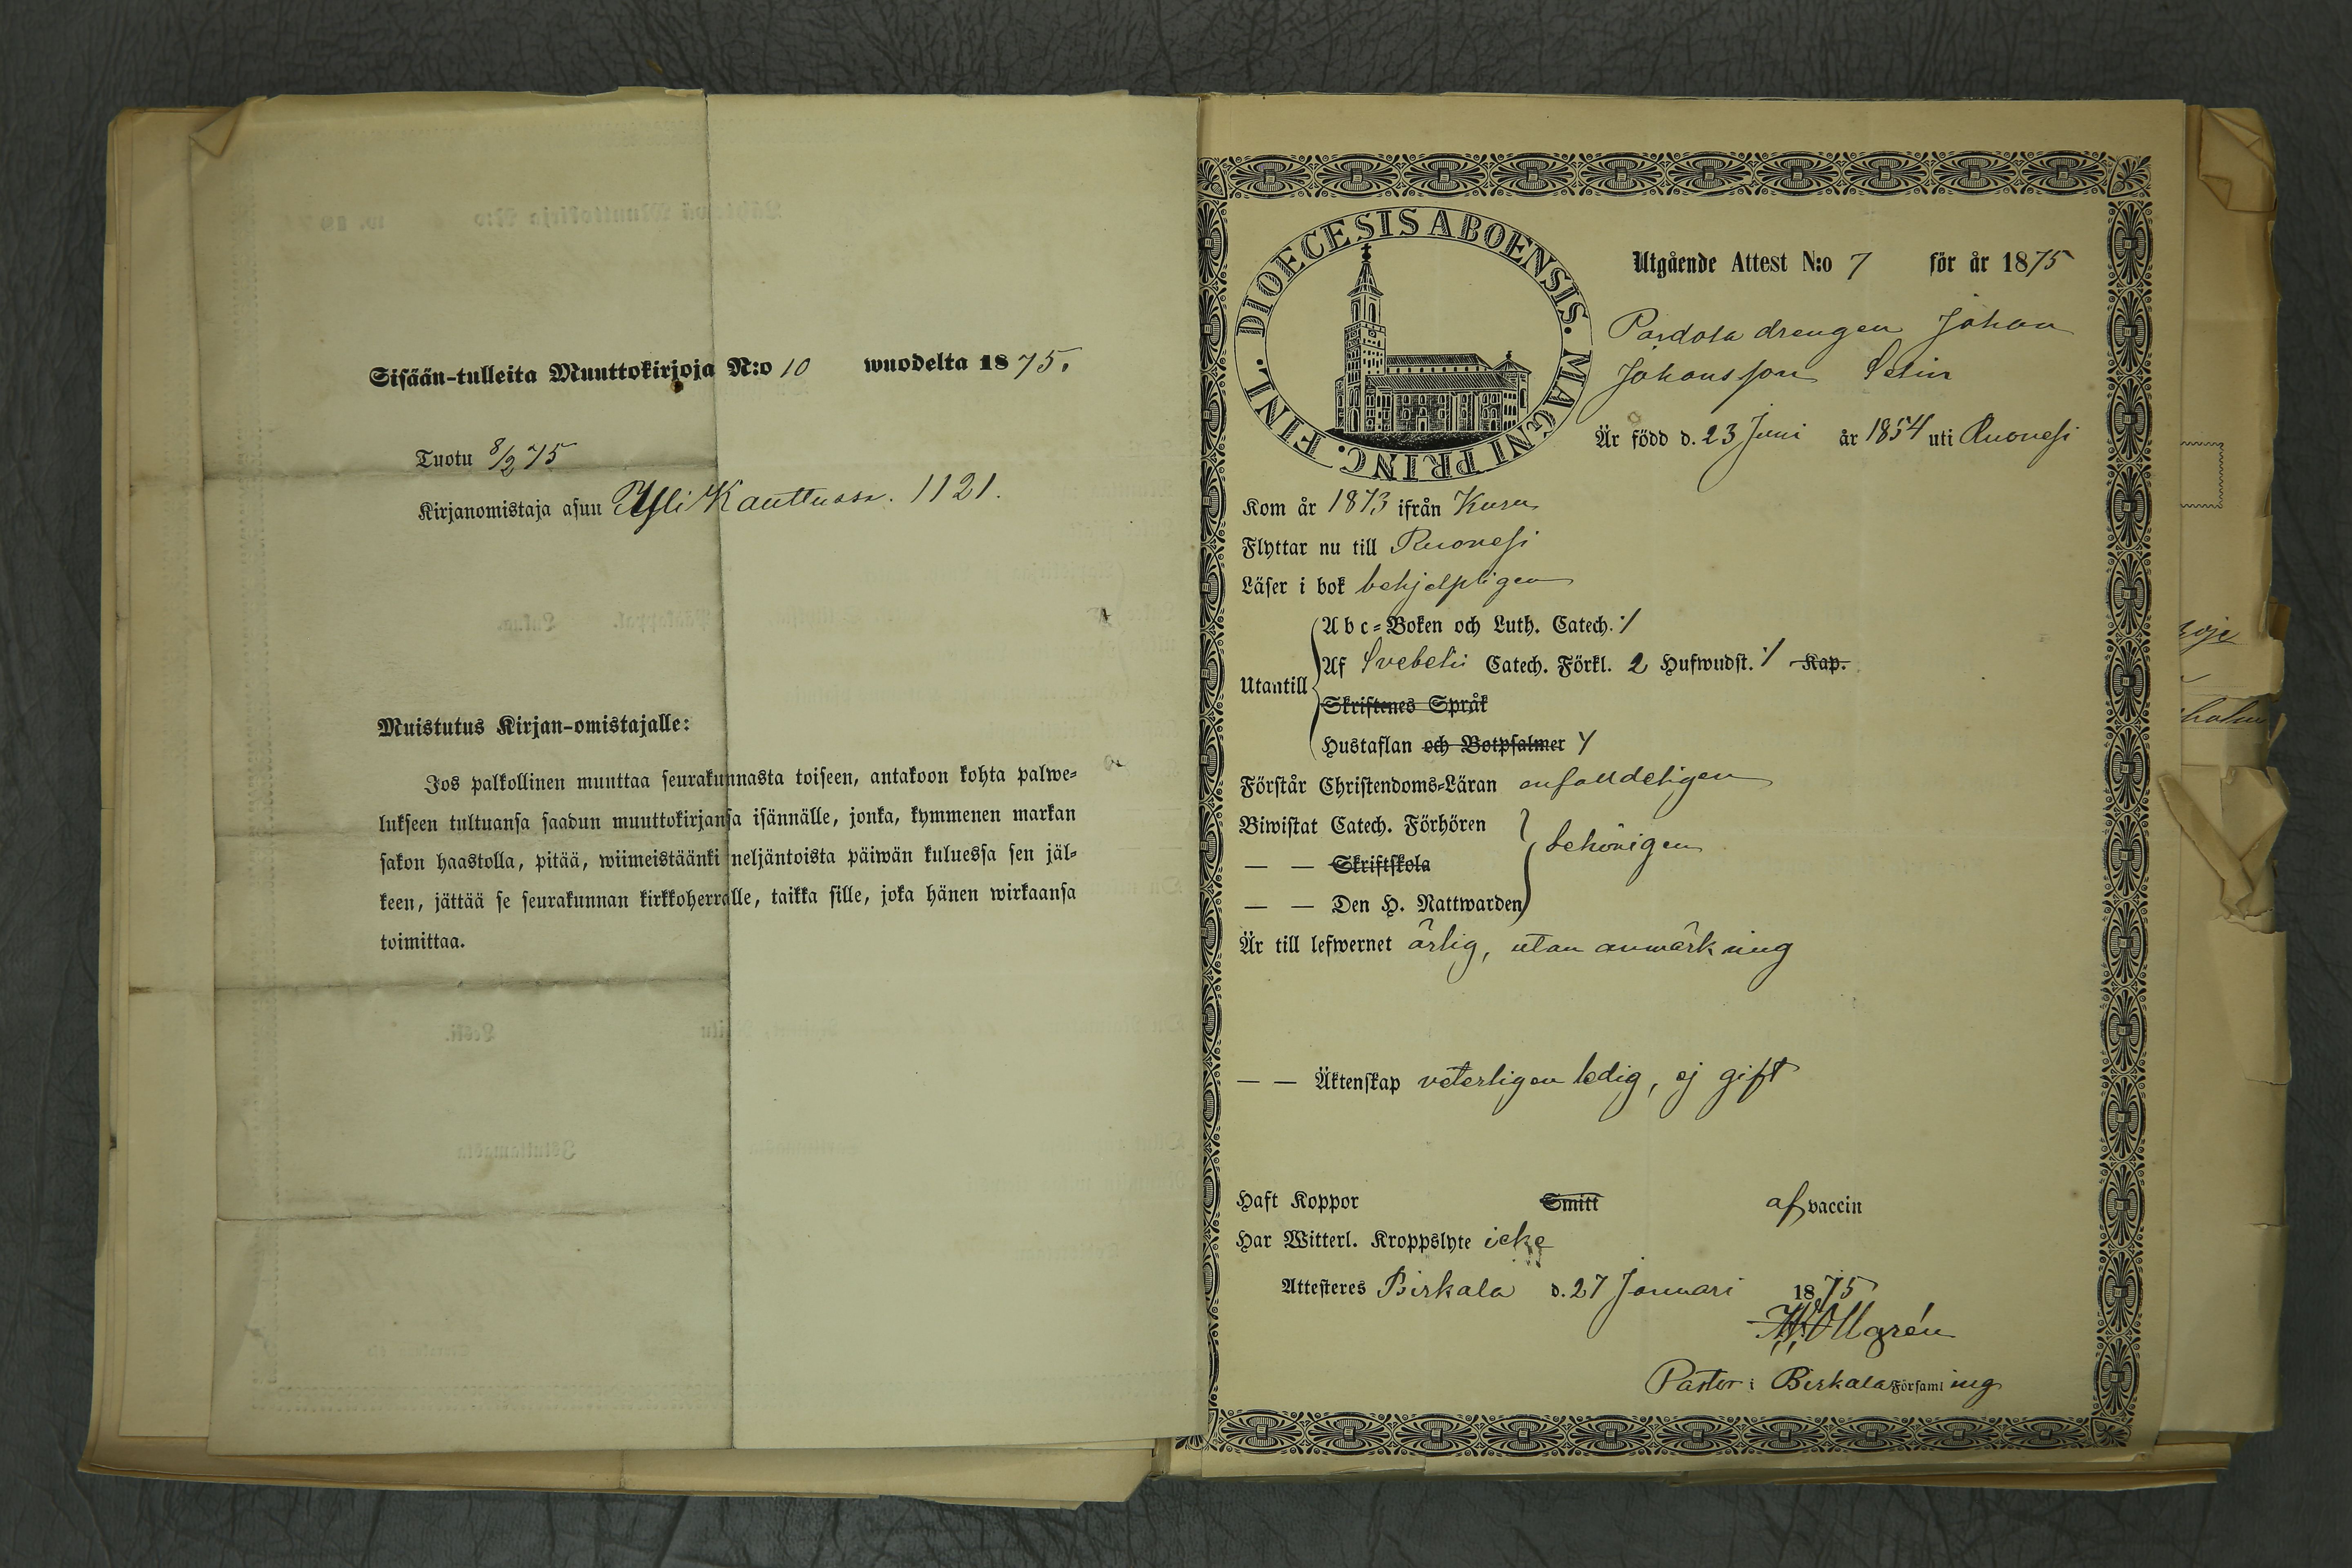 Sisään-tulleita Muuttokirjoja N:o 10 wuodelta 1875.
Tuotu 8/2 75
Kirjanomistaja asuu Yli Kauttuossa. 1121.
Muistutus Kirjan-omistajalle:
Jos palkollinen muuttaa seurakunnasta toiseen, antakoon kohta palwe=
lukseen tultuansa saadun muuttokirjansa isännälle, jonka, kymmenen markan
sakon haastolla, pitää, wiimeistäänki neljäntoista päiwän kuluessa sen jäl=
keen, jättää se seurakunnan kirkkoherralle, taikka sille, joka hänen wirkaansa
toimittaa.
DIOECESIS ABOENSIS. MAGNI PRINC. FINL.
Utgående Attest N:o 7 för år 1875
drengen Johan
Johansson Selin
Är född d. 23 Juni år 1854 uti Ruovesi
Kom år 1873 ifrån Kuru
Flyttar nu till Ruovesi
Läser i bok behjelpligen
Utantill
Abc=Boken och Luth. Catech. /
Af Svebelii Catech. Förkl. 2 Hufwudst. / Kap.
Skriftenes Språk
Hustaflan och Botpsalmer /
Förstår Christendoms=Läran enfalldeligen
Biwistat Catech. Förhören
— — Skriftskola behörigen
— — Den H. Nattwarden
Är till lefwernet ärlig, utan anmärkning
— — Äktenskap veterligen ledig, ej gift
Haft Koppor Smitt af vaccin
Har Witterl. Kroppslyte icke
Attesteres Birkala d. 27 Januari 1875
Pastor i Birkala Församling